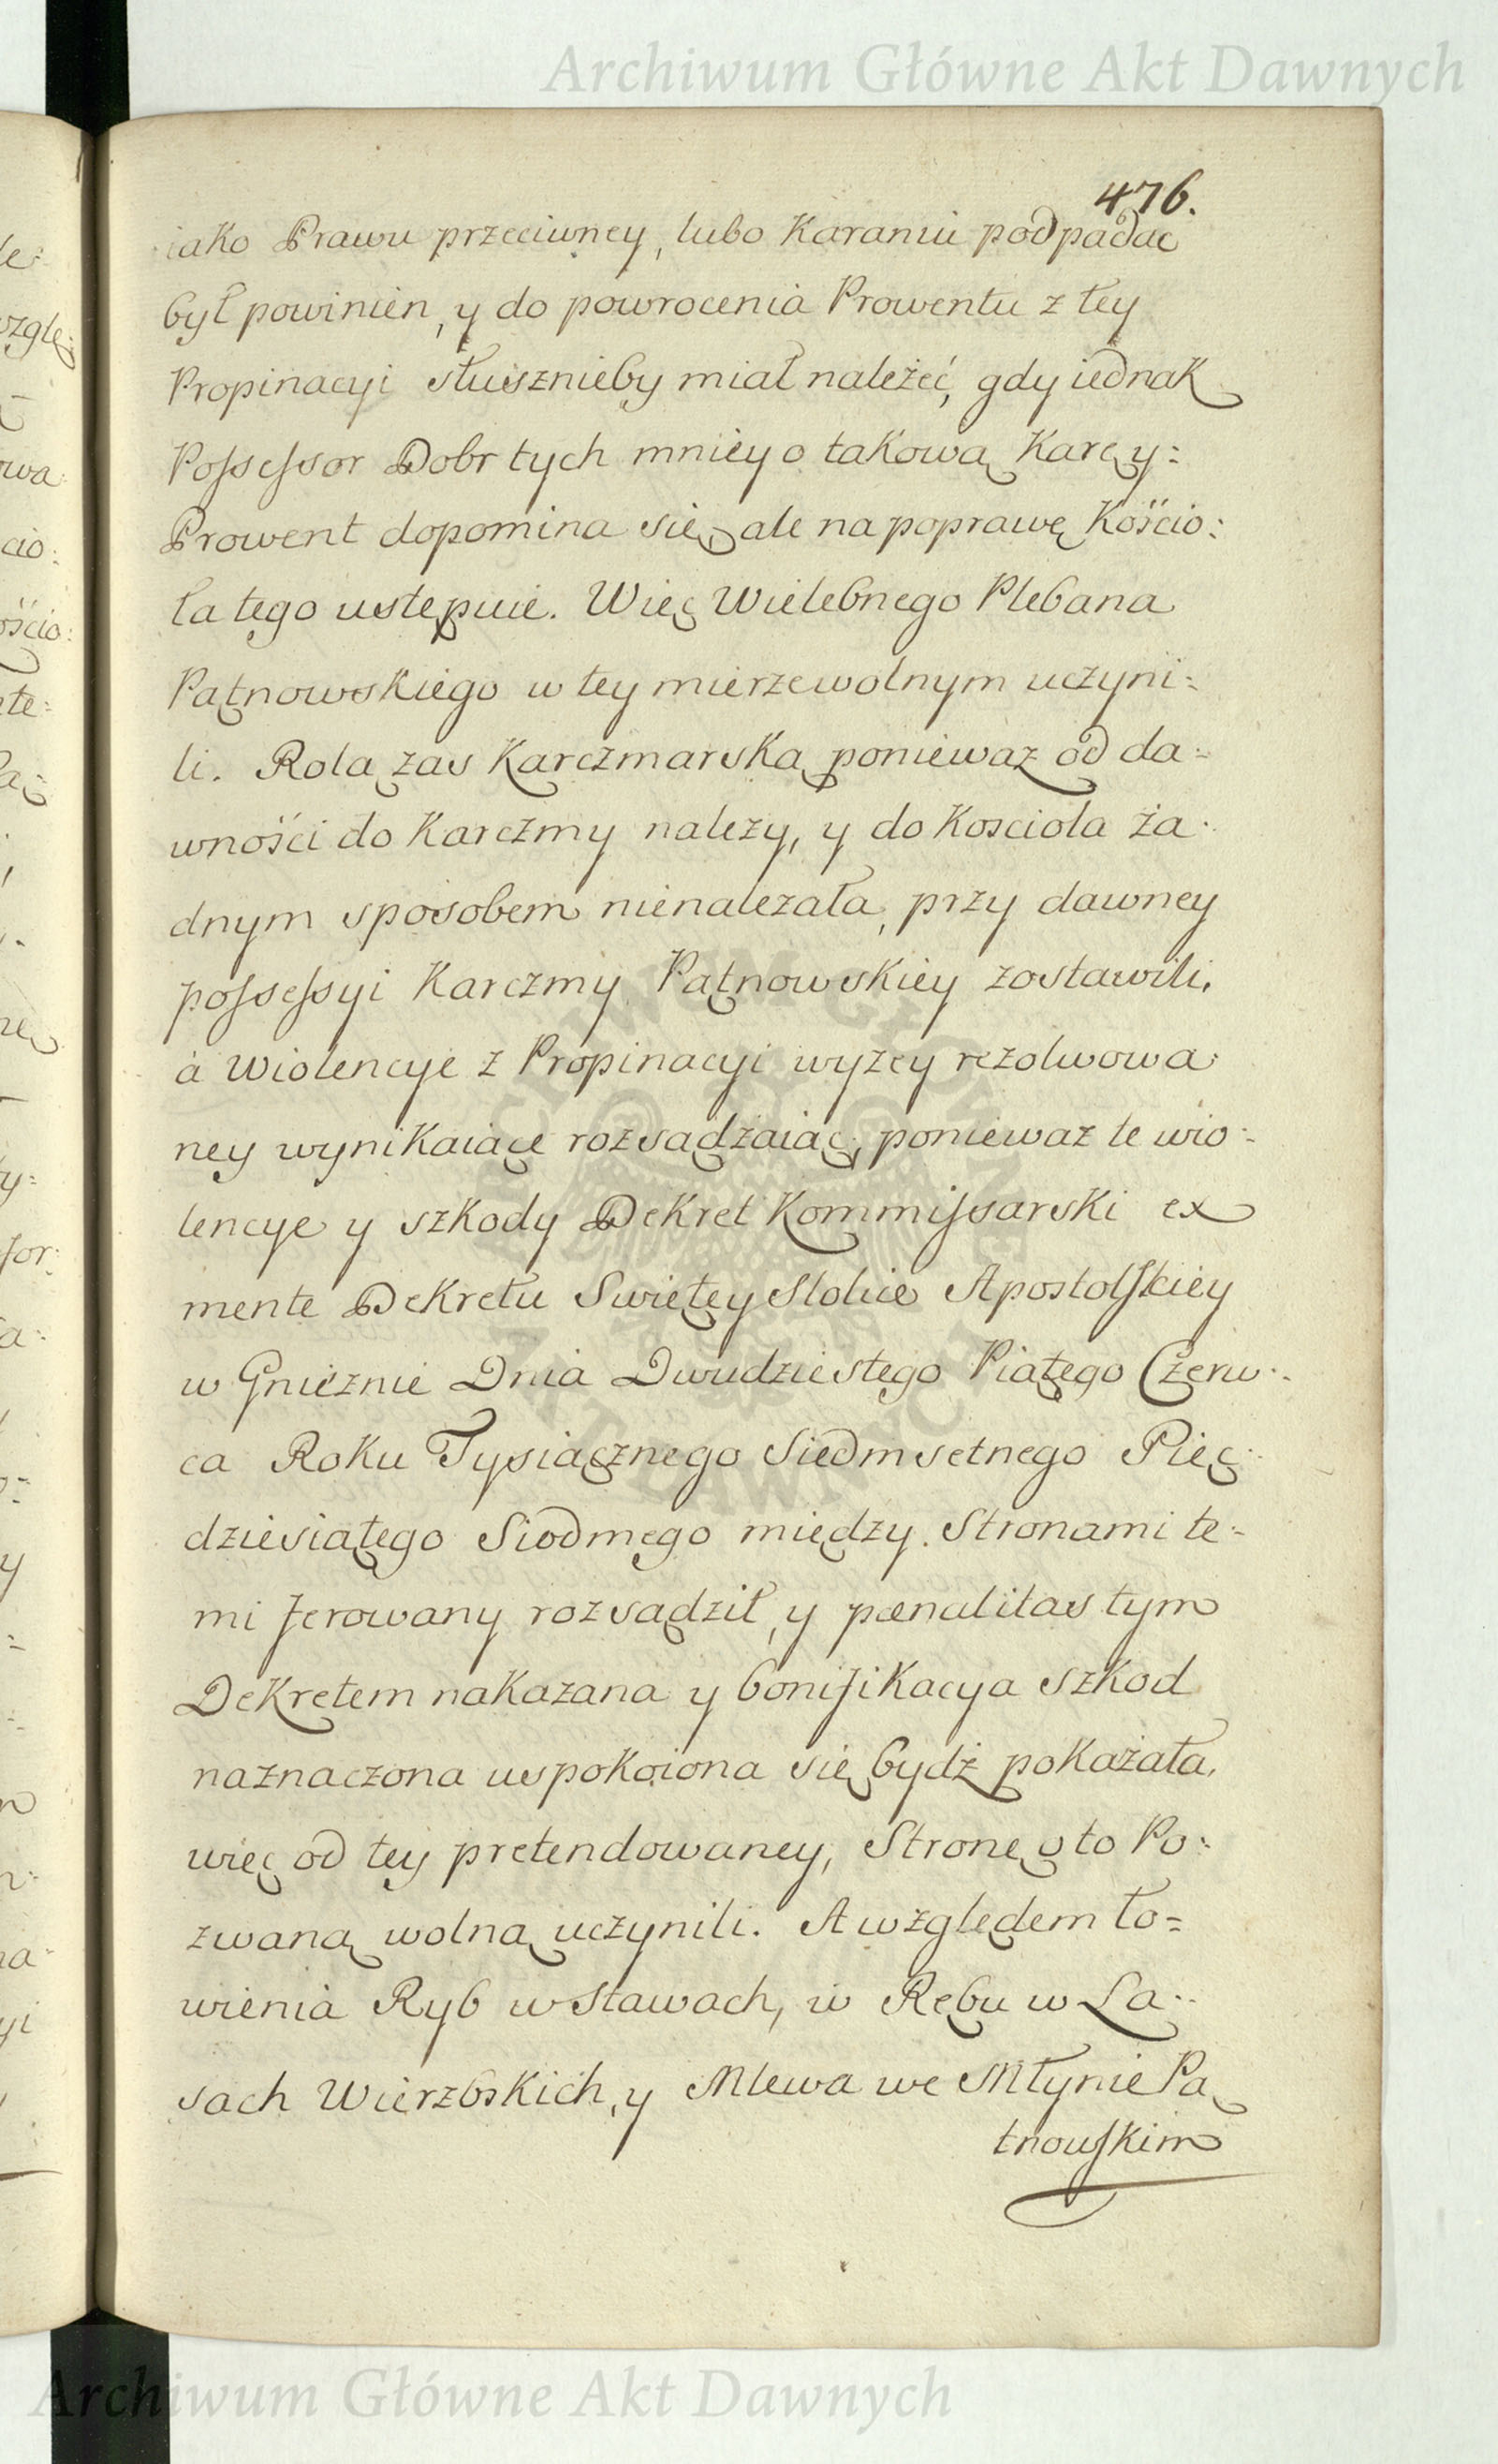 Archiwum Główne Akt Dawnych
476.
iako Prawu przeciwney, lubo Karaniu podpadac
był powinien, y do powrocenia Prowentu z tey
Propinacyi słusznieby miał należeć, gdy iednak
Possessor Dobr tych mniey o takową Karę y:
Prowent dopomina się, ale na poprawę Kościo:
ła tego ustępuie. Więc Wielebnego Plebana
Pątnowskiego w tey mierze wolnym uczyni:
li. Rolą zas Karczmarską poniewaz od da:
wności do Karczmy nalezy, y do Kosciola ża:
dnym sposobem nienalezała, przy dawney
possessyi Karczmy Pątnowskiey zostawili,
à Wiolencye z Propinacyi wyzey rezolwowa:
ney wynikaiące rozsądzaiąc, poniewaz te wio:
lencye y szkody Dekret Kommissarski ex
mente Dekretu Swiętey Stolice Apostolskiey
w Gnieznie Dnia Dwudziestego Piątego Czerw:
ca Roku Tysiącznego Siedmsetnego Pięć
dziesiątego Siodmego między Stronami te:
mi ferowany rozsądził, y pœnalitas tym
Dekretem nakazana y bonifikacya szkod
naznaczona uspokoiona się bydź pokażała,
więc od tey pretendowaney, Stronę o to Po:
zwaną wolną uczynili. A względem ło=
wienia Ryb w stawach, w Rębu w La:
sach Wierzbskich, y Mlewa we Młynie Pą
tnowskim
Archiwum Główne Akt Dawnych